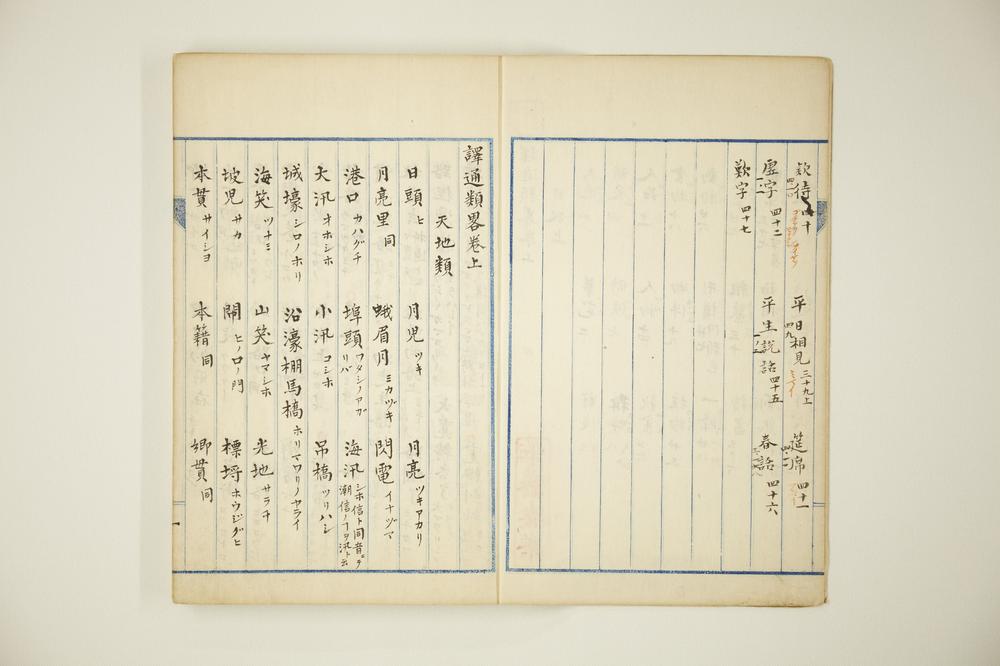 欵待 四十 平日相見 三十九上 筵席 四十一
虚字 四十二 平生説話 四十五 春話 四十六
歎字 四十七
譯通類畧巻上
天地類
日頭 ヒ 月児 ツキ 月亮 ツキアカリ
月亮里 同 蛾眉月 ミカヅキ 閃電 イナヅマ
港口 カハグチ 埠頭 ワタシノアガリバ 海汛 シホ信ト同音ニテ潮信ノコヲ汛ト云
大汛 オホシホ 小汛 コシホ 吊橋 ツリハシ
城壕 シロノホリ 沿濠棚馬槁 ホリマワリノヤライ
海笑 ツナミ 山笑 ヤマシホ 光地 サラチ
坡児 サカ 閘 ヒノロノ門 標埒 ホウジグヒ
本貫 サイシヨ 本籍 同 郷貫 同
一